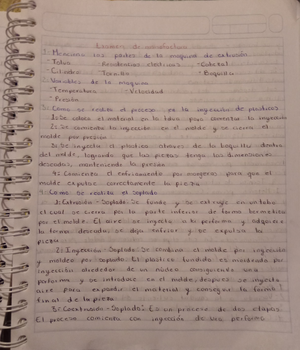 Examen de manufactura
1: Menciona las partes de la maquina de extrusión
- Tolva - Resistencias electricas - Cabezal
- Cilindro - Tornillo - Boquilla
- Variables de la maquina
- Temperatura - Velocidad
- Presión
Como se realiza el proceso de la inyección de plasticos
1: Se coloca el material en la tolva para comenzar la inyección
2: Se comienza la inyección en el molde y se cierra el molde por presión
3: Se inyecta el plastico atraves de la boquilla dentro
del molde, logrando que las piezas tengan las dimensiones
deseadas, manteniendo la presión
4: Comienza el enfriamiento por para que el
molde expulse correctamente la pieza
Como se realiza el Soplado
1: Extrusión - Soplado: Se funde y se extruye en un tubo
el cual se cierra por la parte inferior de forma hermetica
por el molde. El aire se inyecta a la preforma y adquiere
la forma deseada, se deja enfriar y se expulsa la
pieza
2: Inyección - Soplado: Se combina el molde por inyección
y moldeo por soplado. El plastico fundido es moldeado por
inyección alrededor de un núcleo consiguiente una
preforma y se introduce en el molde, despues se inyecta
aire para expandir el material y conseguir la forma
final de la pieza
3: - Soplado: Es un proceso de dos etapas.
El proceso comienza con inyección de una preforma